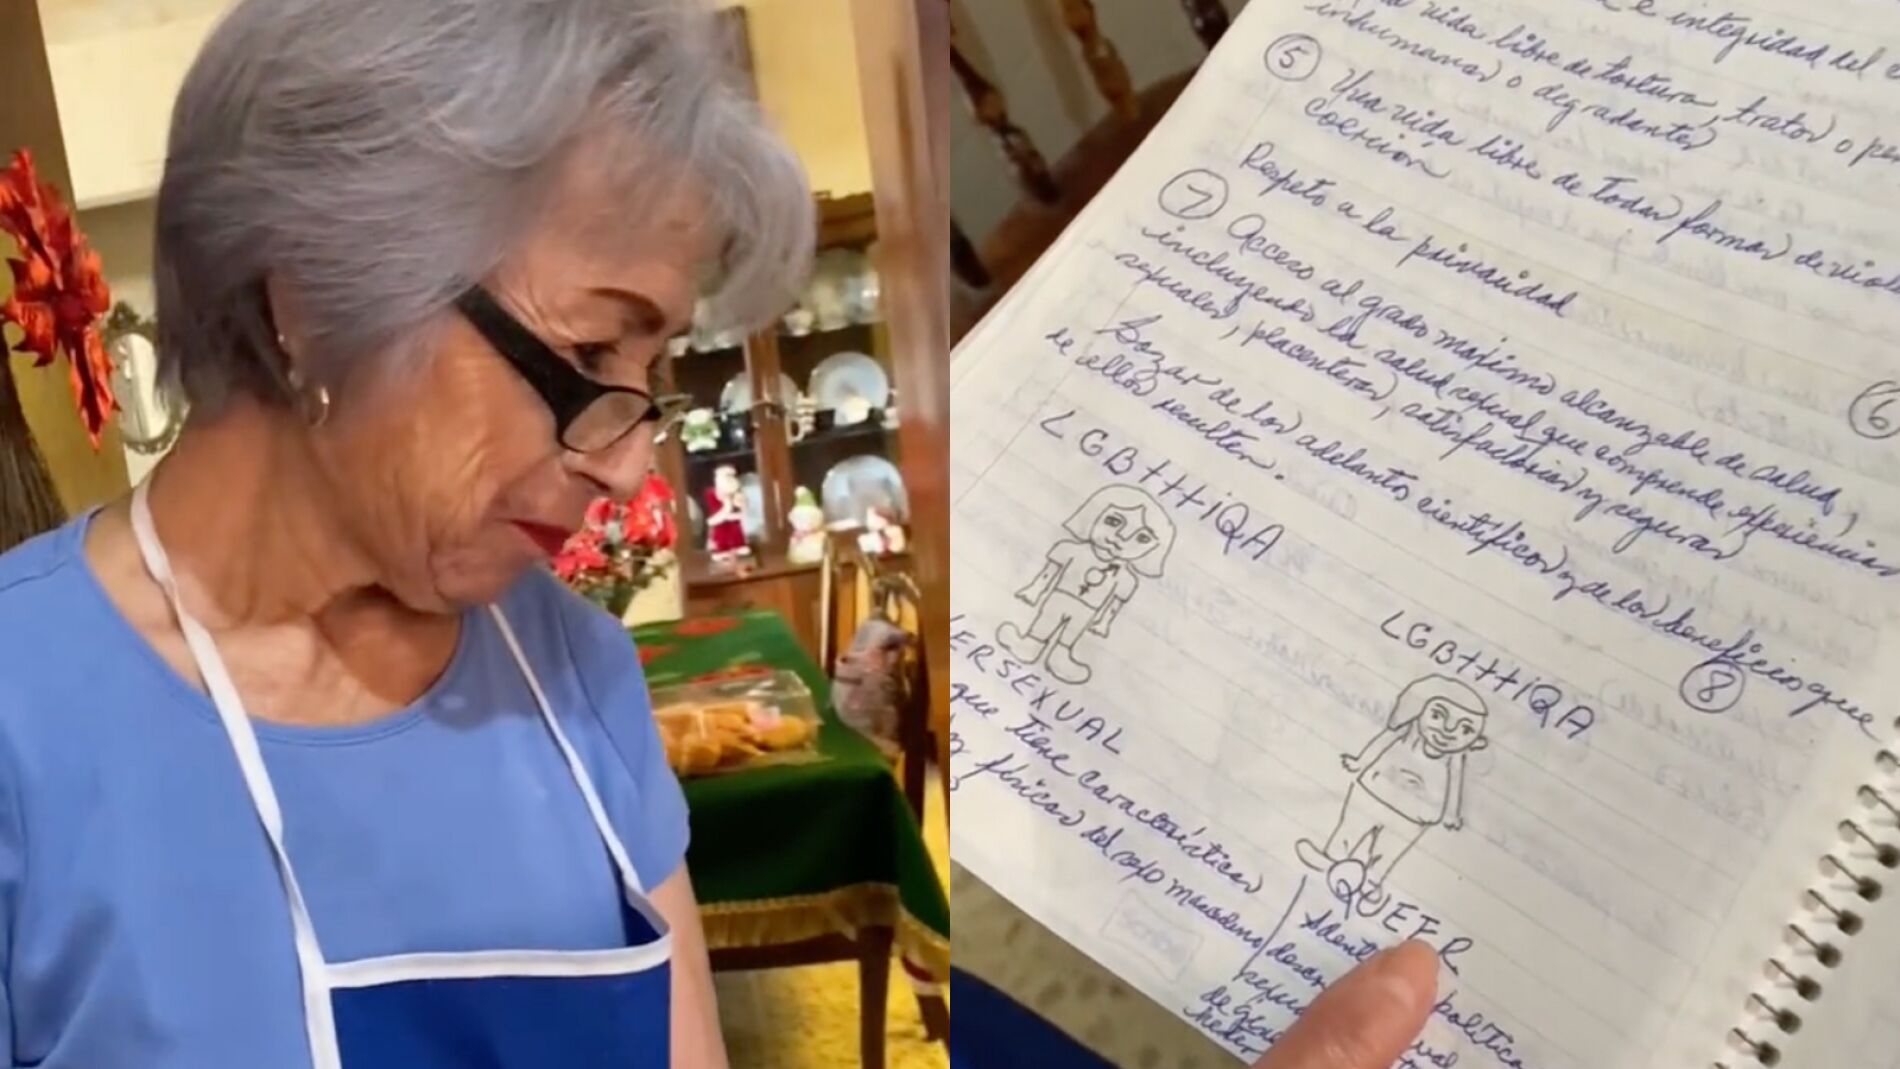 e integridad del
na vida libre de tortura, tratos o pe
inhumanos o degradantes
⑤ Una vida libre de todas formas de viol
coerción
⑥
Respeto a la privacidad
⑦ Acceso al grado máximo alcanzable de salud,
incluyendo la salud sexual que comprende experiencias
sexuales, placenteras, satisfactorias y seguras
Gozar de los adelantos científicos y de los beneficios que
de ellos resulten.
⑧
LGBTTTiQA
LGBTTTiQA
ERSEXUAL
que tiene características
físicas del sexo masculino
QUEER
política
sexu
de géne
heter